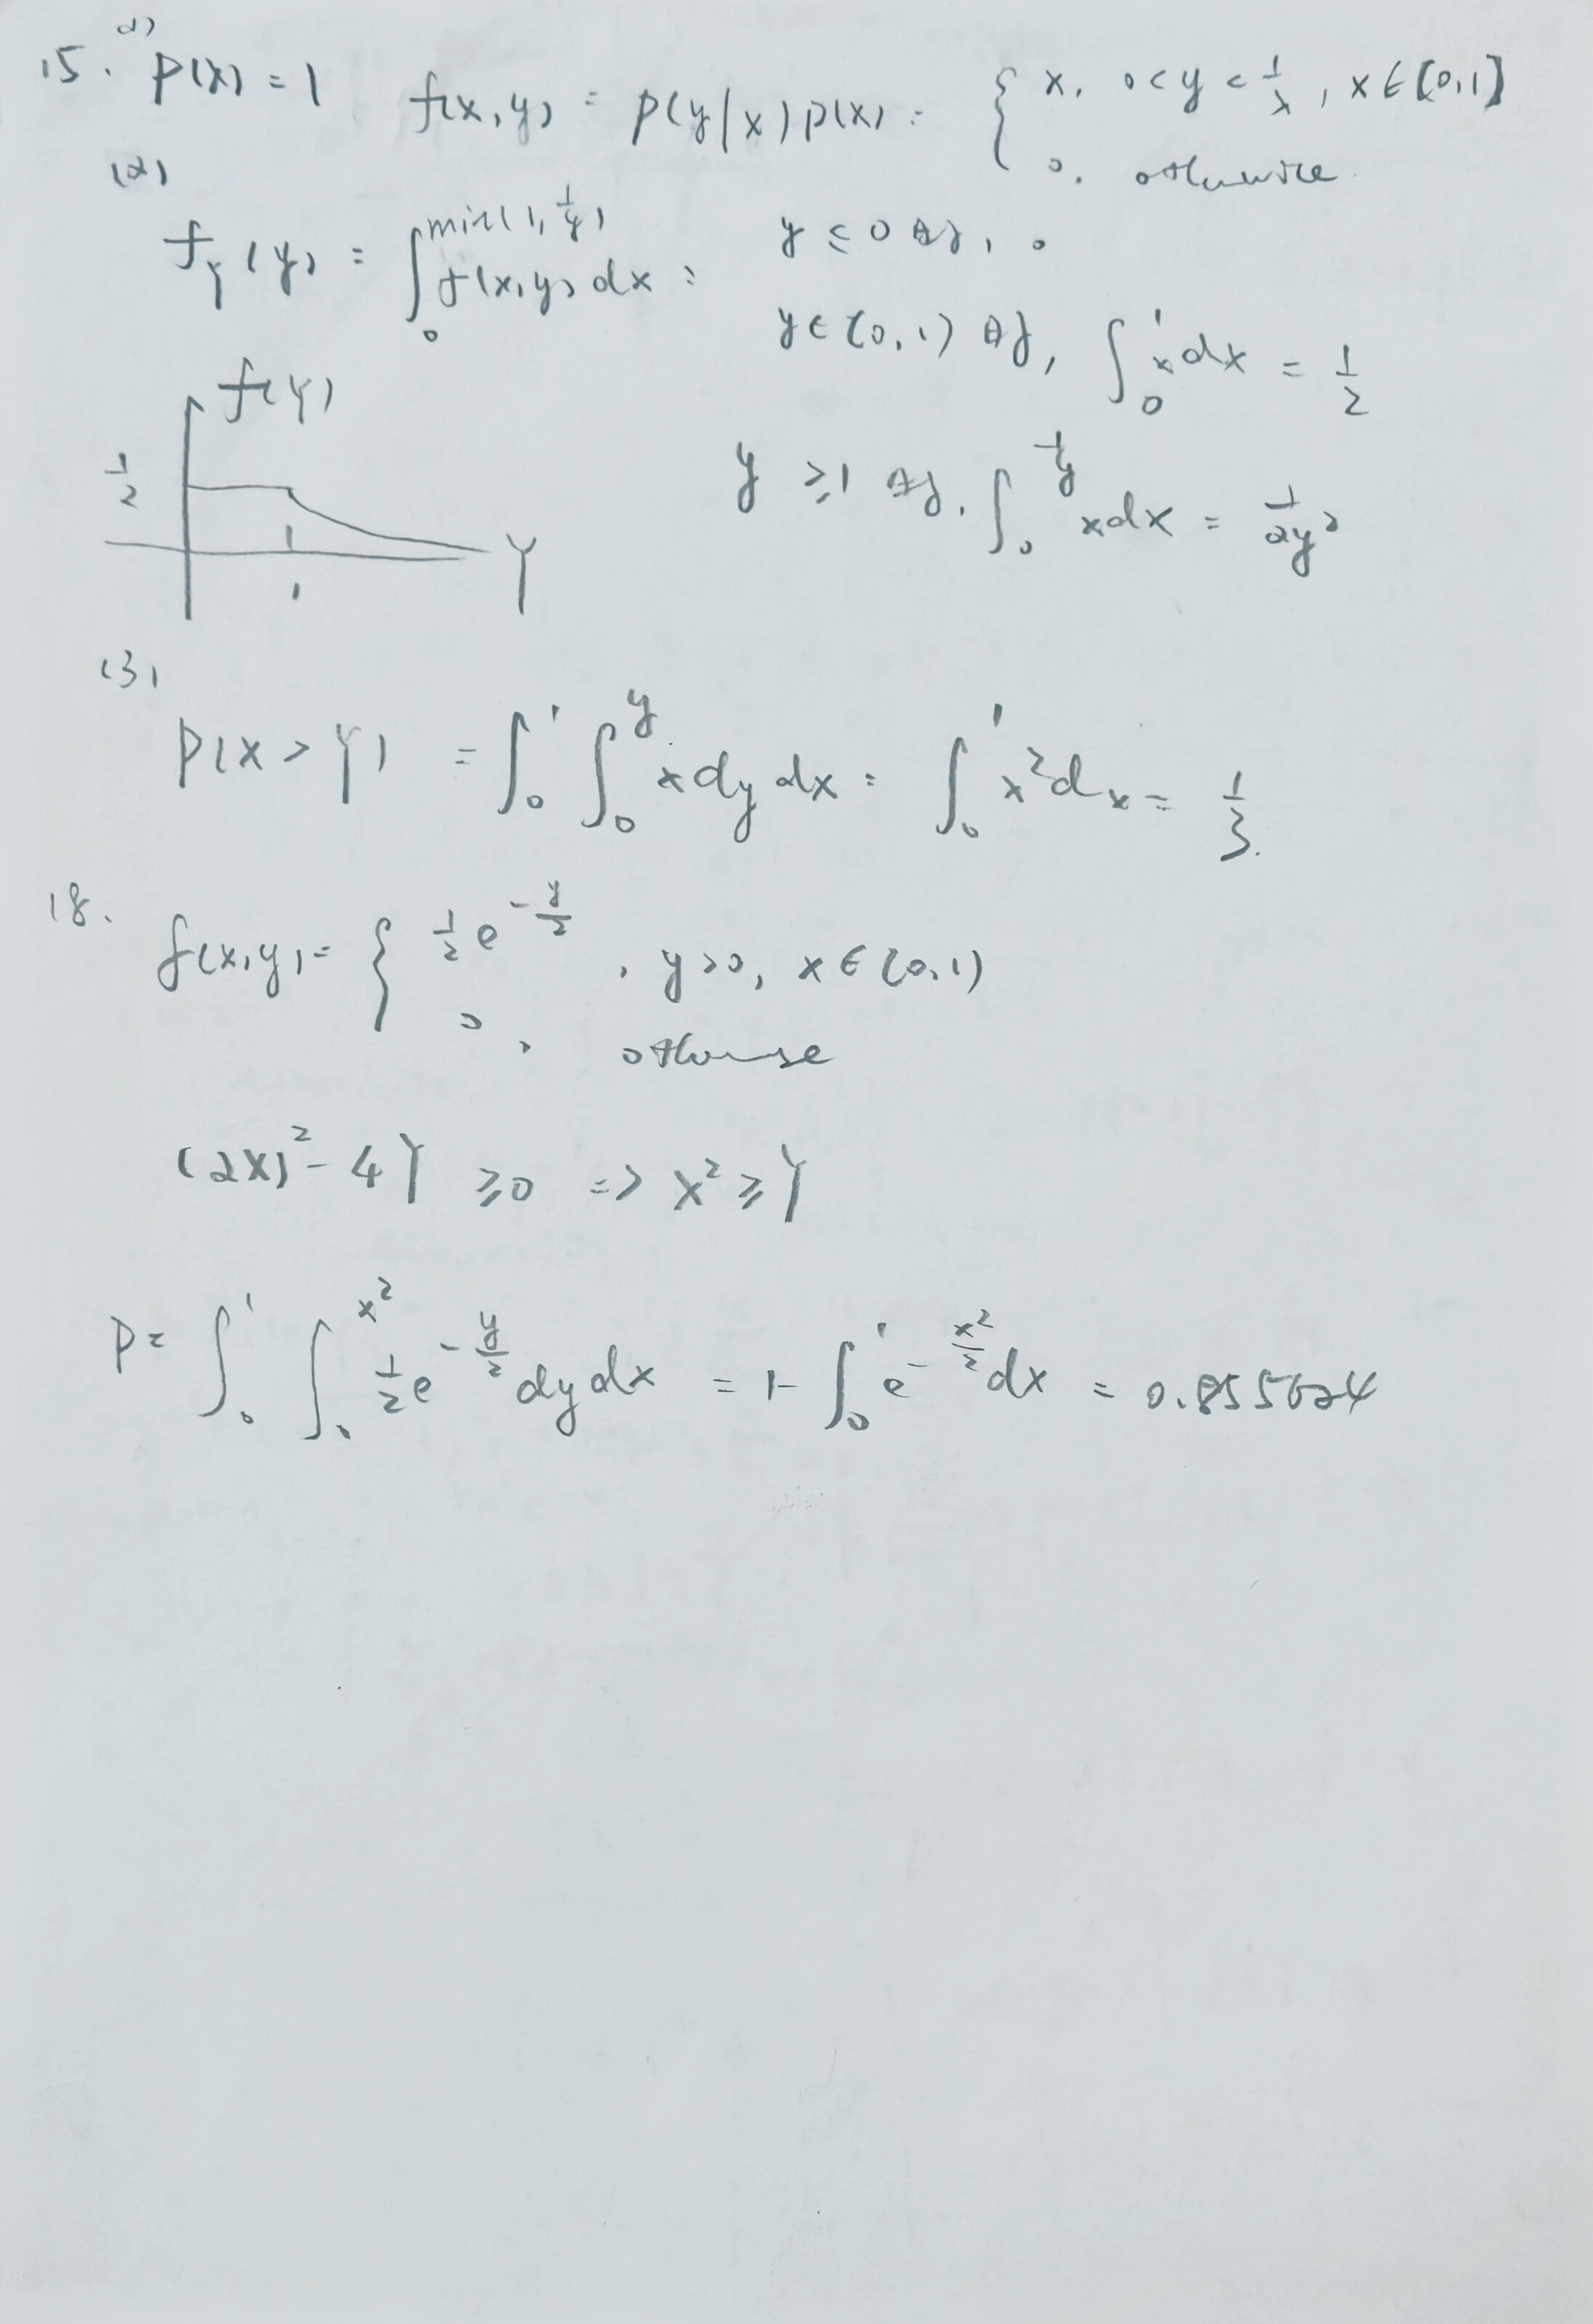 15. (1) P(x) = 1 f(x,y) = p(y|x)p(x) = { x, 0<y<1/x, x∈[0,1]
0, otherwise
(2)
f_Y(y) = ∫_0^{min(1,1/y)} f(x,y)dx = y≤0时, 0
y∈(0,1)时, ∫_0^1 xdx = 1/2
y≥1时, ∫_0^{1/y} xdx = 1/2y²
f(Y)
1/2
Y
1
(3)
P(X>Y) = ∫_0^1 ∫_0^y x dy dx = ∫_0^1 x²dx = 1/3.
18. f(x,y) = { 1/2 e^{-y/2}, y>0, x∈(0,1)
0, otherwise
(2X)² - 4Y ≥0 => X²≥Y
P= ∫_0^1 ∫_0^{x²} 1/2 e^{-y/2} dy dx = 1- ∫_0^1 e^{-x²/2} dx = 0.855624